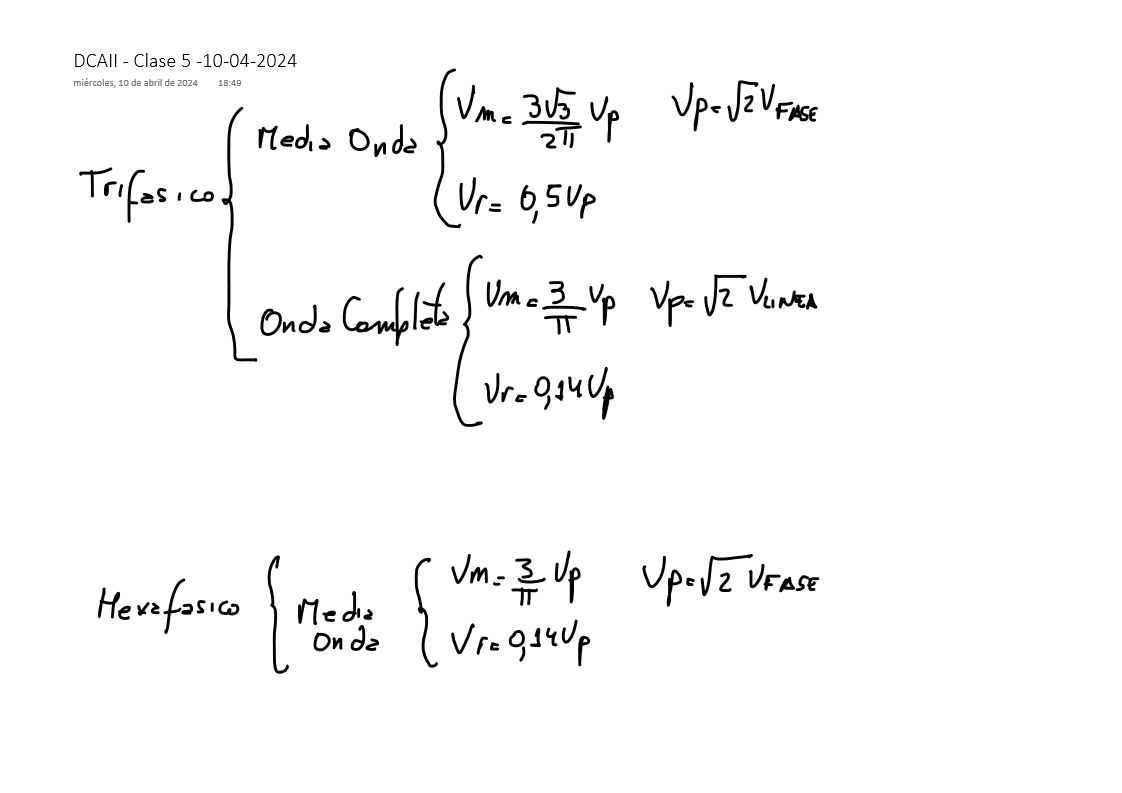 DCAII - Clase 5 -10-04-2024
miércoles, 10 de abril de 2024 18:49
Trifasico
Media Onda
Vm = 3√3/2π Vp Vp = √2 VFASE
Vr = 0,5 Vp
Onda Completa
Vm = 3/π Vp Vp = √2 VLINEA
Vr = 0,14 Vp
Hexafasico
Media
Onda
Vm = 3/π Vp Vp = √2 VFASE
Vr = 0,14 Vp